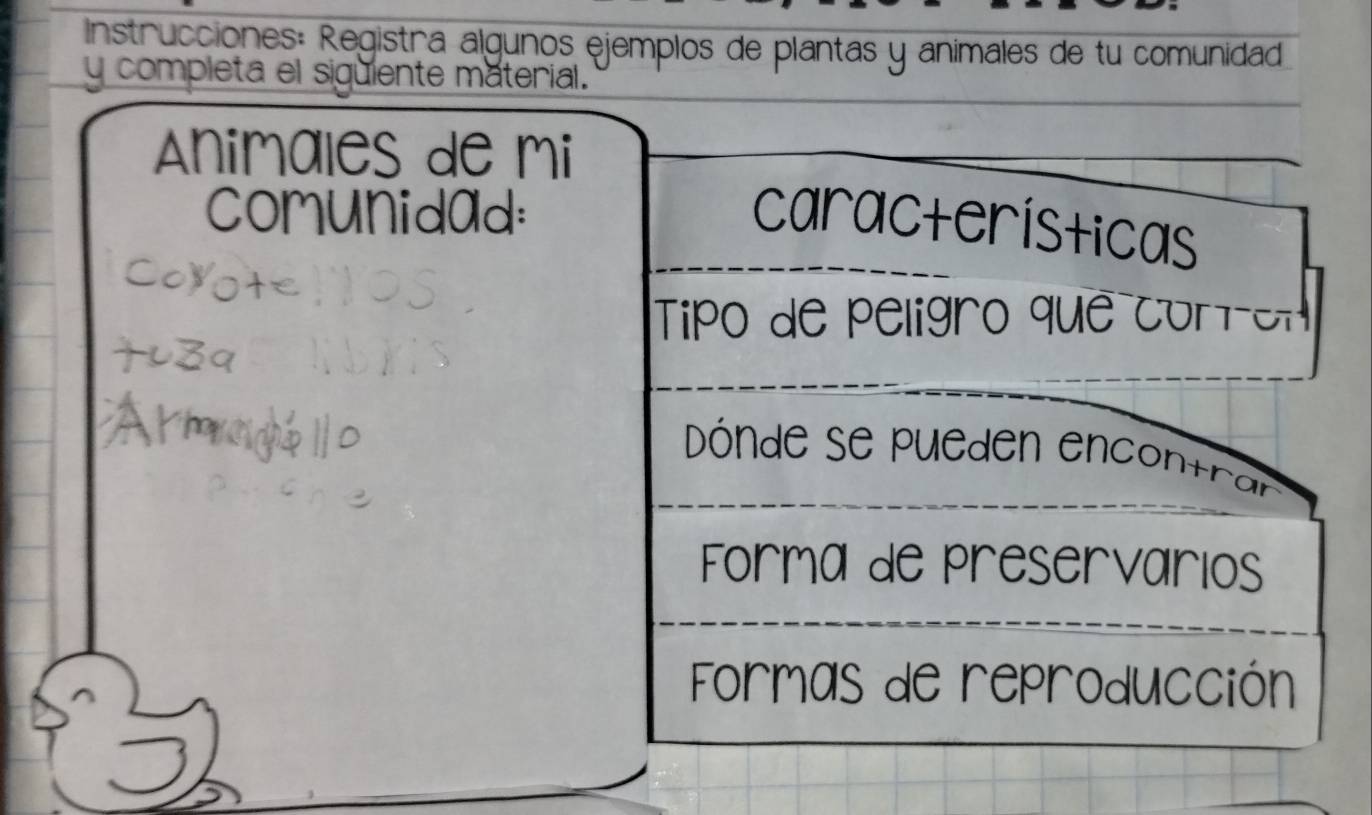 Instrucciones: Registra algunos ejemplos de plantas y animales de tu comunidad
y completa el siguiente material.
Animales de mi
comunidad:
Coyote
tuza
Armadillo
características
Tipo de peligro que corren
Dónde se pueden encontrar
Forma de preservarlos
Formas de reproducción